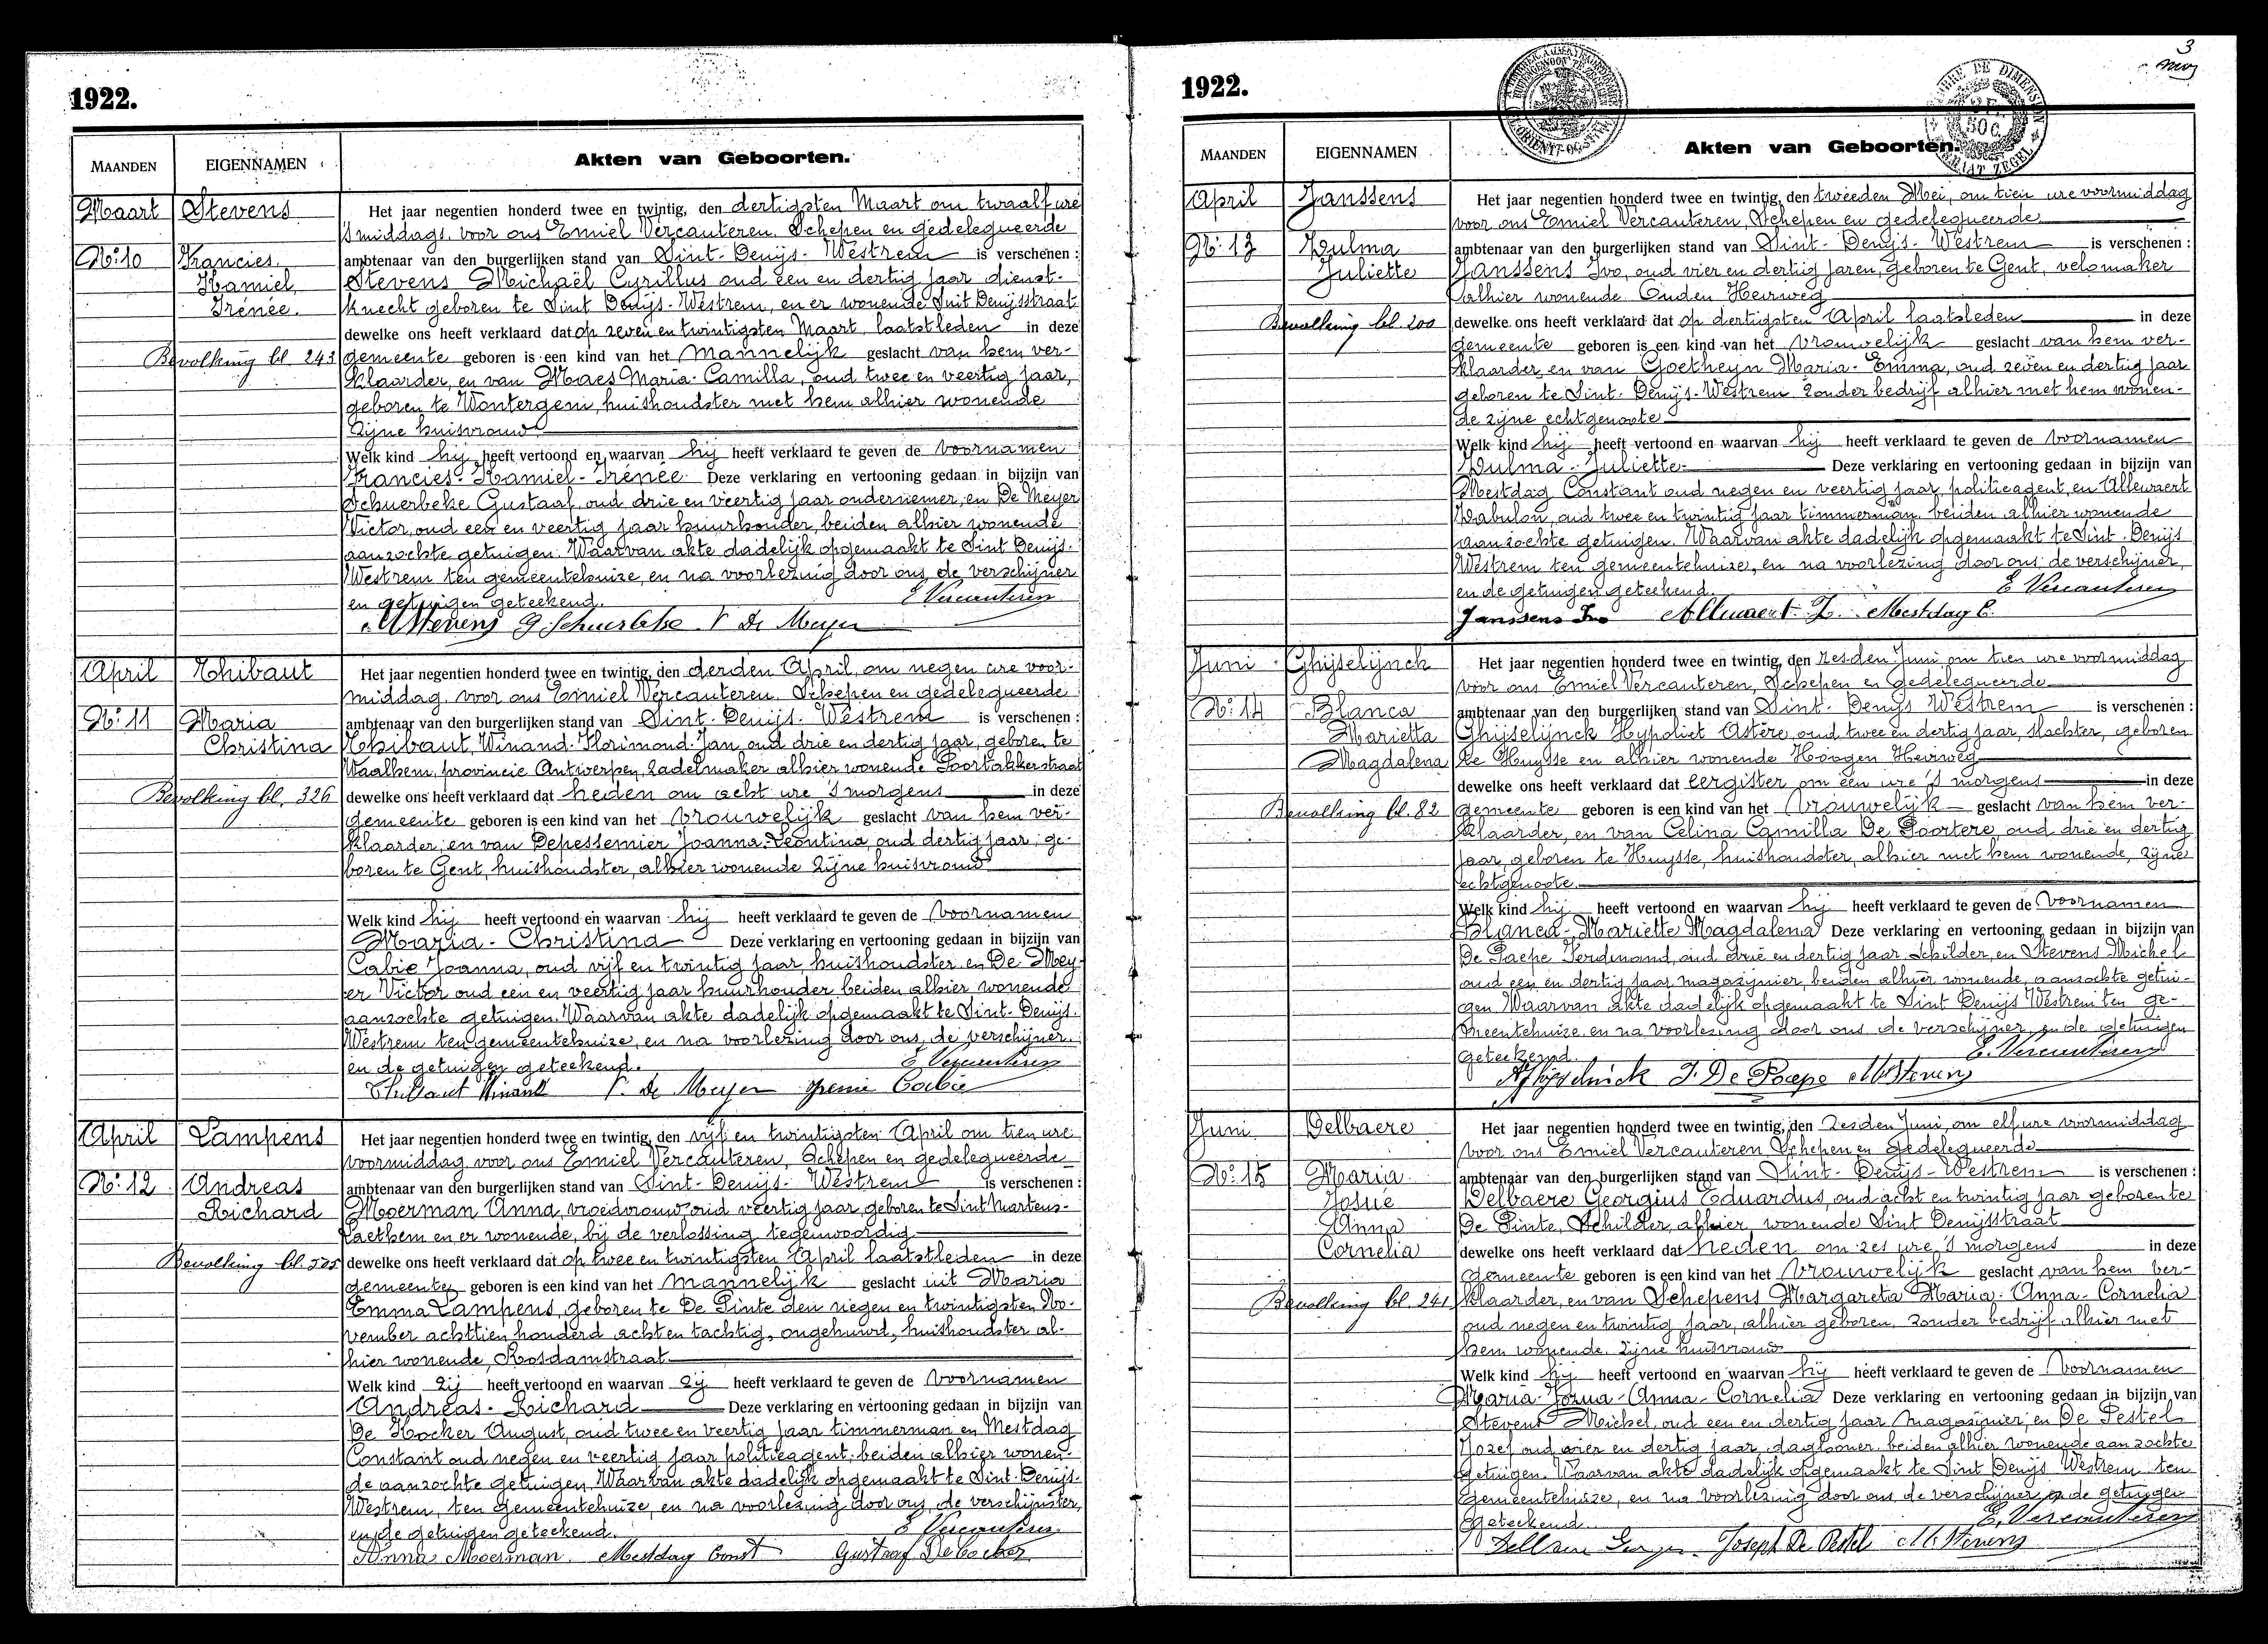 1922.
MAANDEN EIGENNAMEN Akten van Geboorten.
Maart Stevens
Nr. 10 Francies
Kamiel,
Irénée.
Bevolking bl. 243
Het jaar negentien honderd twee en twintig, den dertigsten Maart om twaalf ure
's middags. voor ons Emiel Vercauteren, Schepen en gedelegueerde
ambtenaar van den burgerlijken stand van Sint-Denijs-Westrem is verschenen :
Stevens Michaël Cyrillus oud een en dertig jaar dienst-
knecht geboren te Sint Denijs-Westrem, en er wonende Sint Denijsstraat
dewelke ons heeft verklaard dat op zeven en twintigsten Maart laatstleden in deze
gemeente geboren is een kind van het mannelijk geslacht van hem ver-
klaarder, en van Maes Maria-Camilla, oud twee en veertig jaar,
geboren te Wontergem, huishoudster met hem alhier wonende
zijne huisvrouw
Welk kind hij heeft vertoond en waarvan hij heeft verklaard te geven de voornamen
Francies-Kamiel-Irénée Deze verklaring en vertooning gedaan in bijzijn van
Schuerbeke Gustaaf, oud drie en veertig jaar ondernemer, en De Meyer
Victor, oud een en veertig jaar huurhouder, beiden alhier wonende
aanzochte getuigen. Waarvan akte dadelijk opgemaakt te Sint Denijs-
Westrem ten gemeentehuize, en na voorlezing door ons, de verschijner
en getuigen geteekend. E Vercauteren
M Stevens G. Schuerbeke V De Meyer
April Thibaut
Nr. 11 Maria
Christina
Bevolking bl. 326
Het jaar negentien honderd twee en twintig, den derden April, om negen ure voor-
middag, voor ons Emiel Vercauteren, Schepen en gedelegueerde
ambtenaar van den burgerlijken stand van Sint-Denijs-Westrem is verschenen :
Thibaut, Winand-Florimond-Jan, oud drie en dertig jaar, geboren te
Waalhem, provincie Antwerpen, zadelmaker alhier wonende Poortakkerstraat
dewelke ons heeft verklaard dat heden om acht ure 's morgens in deze
gemeente geboren is een kind van het vrouwelijk geslacht van hem ver-
klaarder, en van Depessemier Joanna-Leontina, oud dertig jaar, ge-
boren te Gent, huishoudster, alhier wonende zijne huisvrouw
Welk kind hij heeft vertoond en waarvan hij heeft verklaard te geven de voornamen
Maria-Christina Deze verklaring en vertooning gedaan in bijzijn van
Cabie Joanna, oud vijf en twintig jaar huishoudster en De Mey-
er Victor oud een en veertig jaar huurhouder beiden alhier wonende
aanzochte getuigen. Waarvan akte dadelijk opgemaakt te Sint-Denijs-
Westrem ten gemeentehuize, en na voorlezing door ons, de verschijner
en de getuigen geteekend. E Vercauteren
Thibaut Winand V. De Meyer Cabie
April Lampens
Nr. 12 Andreas
Richard
Bevolking bl.
Het jaar negentien honderd twee en twintig, den vijf en twintigsten April om tien ure
voormiddag voor ons Emiel Vercauteren, Schepen en gedelegueerde
ambtenaar van den burgerlijken stand van Sint-Denijs-Westrem is verschenen :
Moerman Anna, vroedvrouw oud veertig jaar geboren te Sint Martens-
Laethem en er wonende, bij de verlossing tegenwoordig
dewelke ons heeft verklaard dat op twee en twintigsten April laatstleden in deze
gemeente geboren is een kind van het mannelijk geslacht uit Maria
Emma Lampens, geboren te De Pinte den negen en twintigsten No-
vember achttien honderd acht en tachtig, ongehuwd, huishoudster al-
hier wonende, Rosdamstraat
Welk kind zij heeft vertoond en waarvan zij heeft verklaard te geven de voornamen
Andreas-Richard Deze verklaring en vertooning gedaan in bijzijn van
De Kocker August, oud twee en veertig jaar timmerman en Mestdag
Constant oud negen en veertig jaar politieagent, beiden alhier wonen-
de aanzochte getuigen. Waarvan akte dadelijk opgemaakt te Sint-Denijs-
Westrem, ten gemeentehuize, en na voorlezing door ons, de verschijnster,
en de getuigen geteekend. E Vercauteren
Anna Moerman. Mestdag Const Gustaaf De Cocker
3
1922.
MAANDEN EIGENNAMEN Akten van Geboorten.
April Janssens
Nr. 13 Zulma
Juliette
Bevolking bl. 200
Het jaar negentien honderd twee en twintig, den tweeden Mei, om tien ure voormiddag
voor ons Emiel Vercauteren, Schepen en gedelegueerde
ambtenaar van den burgerlijken stand van Sint-Denijs-Westrem is verschenen :
Janssens Ivo, oud vier en dertig jaren, geboren te Gent, velomaker
alhier wonende Ouden Heirweg
dewelke ons heeft verklaard dat op dertigsten April laatsleden in deze
gemeente geboren is een kind van het vrouwelijk geslacht van hem ver-
klaarder, en van Goetheyn Maria-Emma, oud zeven en dertig jaar
geboren te Sint-Denijs-Westrem zonder bedrijf alhier met hem wonen-
de zijne echtgenoote
Welk kind hij heeft vertoond en waarvan hij heeft verklaard te geven de voornamen
Zulma-Juliette Deze verklaring en vertooning gedaan in bijzijn van
Mestdag Constant oud negen en veertig jaar, politieagent, en Allewaert
Zabulon, oud twee en twintig jaar timmerman, beiden alhier wonende
aanzochte getuigen. Waarvan akte dadelijk opgemaakt te Sint-Denijs
Westrem ten gemeentehuize, en na voorlezing door ons, de verschijner,
en de getuigen geteekend. E Vercauteren
Janssens Ivo Allewaert Z. Mestdag C.
Juni Ghijselijnck
Nr. 14 Blanca
Marietta
Magdalena
Bevolking bl. 82
Het jaar negentien honderd twee en twintig, den zesden Juni om tien ure voormiddag
voor ons Emiel Vercauteren, Schepen en Gedelegueerde
ambtenaar van den burgerlijken stand van Sint-Denijs Westrem is verschenen :
Ghijselijnck Hypoliet Astère, oud twee en dertig jaar, slachter, geboren
te Huysse en alhier wonende Hoogen Heirweg
dewelke ons heeft verklaard dat eergister om een ure 's morgens in deze
gemeente geboren is een kind van het vrouwelijk geslacht van hem ver-
klaarder, en van Celina Camilla De Poortere, oud drie en dertig
jaar, geboren te Huysse, huishoudster, alhier met hem wonende, zijne
echtgenoote.
Welk kind hij heeft vertoond en waarvan hij heeft verklaard te geven de voornamen
Blanca-Mariette Magdalena Deze verklaring en vertooning gedaan in bijzijn van
De Paepe Ferdinand, oud drie en dertig jaar schilder, en Stevens Michel
oud een en dertig jaar magazijnier, beiden alhier wonende, aanzochte getui-
gen Waarvan akte dadelijk opgemaakt te Sint Denijs Westrem ten ge-
meentehuize en na voorlezing door ons de verschijner en de getuigen
geteekend. E. Vercauteren
F. De Paepe M Stevens
Juni Delbaere
Nr. 15 Maria
Josué
Anna
Cornelia
Bevolking bl. 241
Het jaar negentien honderd twee en twintig, den zesden Juni, om elf ure voormiddag
voor ons Emiel Vercauteren Schepen en gedelegueerde
ambtenaar van den burgerlijken stand van Sint-Denijs-Westrem is verschenen :
Delbaere Georgius Eduardus, oud acht en twintig jaar geboren te
De Pinte, Schilder, alhier wonende Sint Denijsstraat
dewelke ons heeft verklaard dat heden om zes ure 's morgens in deze
gemeente geboren is een kind van het vrouwelijk geslacht van hem ver-
klaarder, en van Schepens Margareta Maria-Anna-Cornelia
oud negen en twintig jaar, alhier geboren, zonder bedrijf alhier met
hem wonende, zijne huisvrouw
Welk kind hij heeft vertoond en waarvan hij heeft verklaard te geven de voornamen
Maria-Josua-Anna-Cornelia Deze verklaring en vertooning gedaan in bijzijn van
Stevens Michel, oud een en dertig jaar magazijnier en De Pestel
Jozef oud vier en dertig jaar, daglooner, beiden alhier wonende aanzochte
getuigen. Waarvan akte dadelijk opgemaakt te Sint Denijs Westrem ten
gemeentehuize, en na voorlezing door ons de verschijner en de getuigen
geteekend. E. Vercauteren
Joseph De Pestel M Stevens